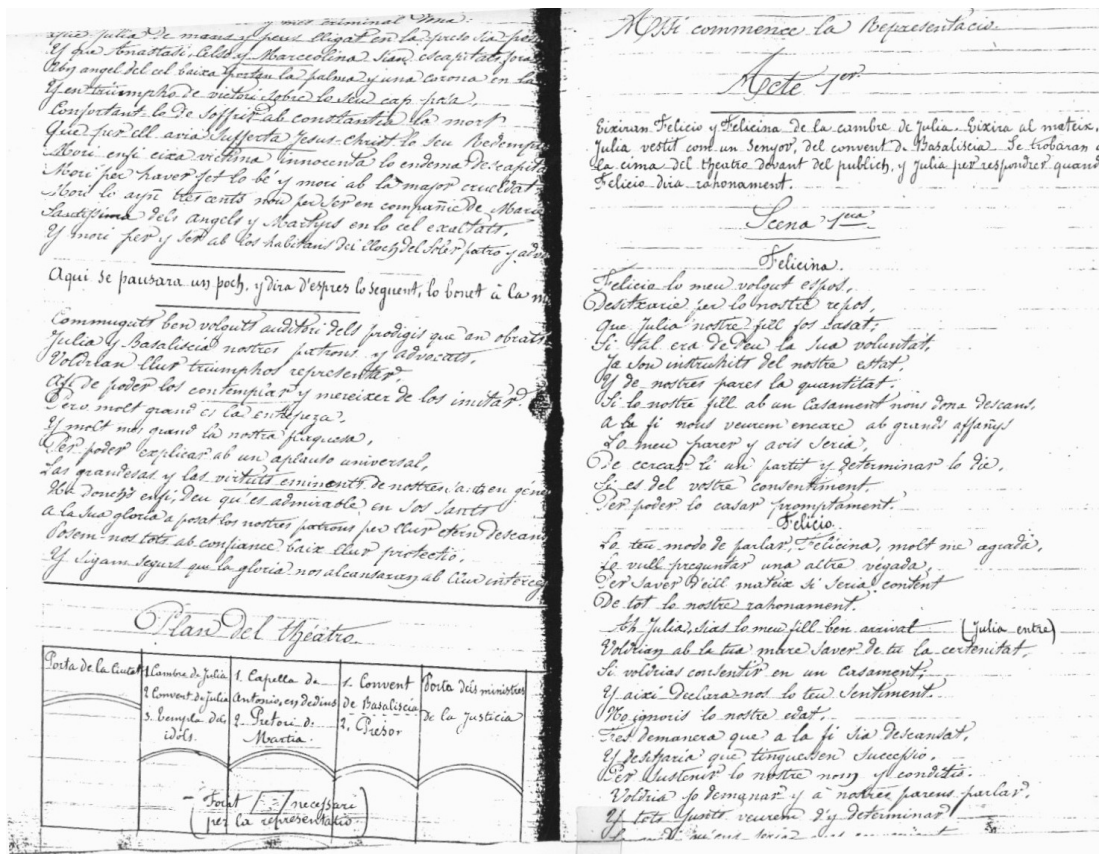 y mes criminal
que Julia de mans y peus lligat en la preso sia
Y que Anastasi, Celso y Marceolina sian escapitats fora
Un angel del cel baixa portan la palma y una corona en la
Y en triumpho de victori sobre lo seu cap
Confortant-lo de soffrir ab constantia la mort
Que per ell avia sufferta Jesus-Christ lo seu Redempt
Mori enfi eixa victima innocenta lo endema descapita
Mori per haver fet lo bé y mori ab la major crueldat
Mori lo ayn tres cents nou per ser en companie de Marie
Santissima dels angels y Martyrs en lo cel exaltats,
Y mori per y ser ab los habitans del lloch del Soler patro y advo
Aqui se pausara un poch, y dira d'espres lo seguent, lo bonet à la m
Commuguts ben volguts auditori dels prodigis que an obrats
Julia y Basaliscia nostres patrons y advocats,
Voldrian llur triumphos representar,
Afi de poder los contemplar y mereixer de los imitar.
Pero molt grand es la entrepresa,
Y molt mes grand la nostra flaquesa,
Per poder explicar ab un aplauso universal,
Las grandesas y las virtuts eminents de nostres en gene
Ha donchs enfi, Deu qu'es admirable en sos sants
A la sua gloria a posat los nostres patrons per llur etern descans
Posem-nos tots ab confiance baix llur protectio,
Y sigam segurs que la gloria nos alcansaran ab llur interces
Plan del théatro
Porta de la Ciutat
1. Cambra de Julia
2. Convent de Julia
3. Temple dels idols.
1. Capella de Antonio, en dedins
2. Pretori de Martia.
1. Convent de Basaliscia
2. Presor
Porta dels ministres de la Justicia
- Foret necessari
(per la representatio)
Assi commence la Representacio
Acte 1er
Eixiran Felicio y Felicina de la cambre de Julia. Eixira al mateix,
Julia vestit com un Senyor, del convent de Basaliscia. Se trobaran a
la cima del theatro devant del publich, y Julia per respondrer quand
Felicio dira rahonament.
Scena 1era
Felicina.
Felicio lo meu volgut espos,
Desitxarie per lo nostre repos,
Que Julia nostre fill fos casat;
Si tal era de Deu la sua voluntat,
Ja son instruhits del nostre estat,
Y de nostres pares la quantitat.
Si lo nostre fill ab un casament nous dona descans,
A la fi nous veurem encare ab grands affanys
Lo meu parer y avis seria,
De cercar li un partit y determinar lo die,
Si es del vostre consentiment.
Per poder lo casar promptament.
Felicio.
Lo teu modo de parlar, Felicina, molt me agrada,
Lo vull preguntar una altre vegada,
Per saver d'eill mateix si seria content
De tot lo nostre rahonament.
Ah Julia, sias lo meu fill ben arrivat (Julia entre)
Voldrian ab la tua mare saver de tu la certenitat,
Si voldrias consentir en un casament,
Y aixi declara-nos lo teu sentiment.
No ignoris lo nostre edat,
Fes demanera que a la fi sia descansat,
Y desitjaria que tinguessen successio,
Per sustenir lo nostre nom y conditio.
Voldria jo demanar y à nostres parens parlar,
Y tots junts veurem d'y determinar